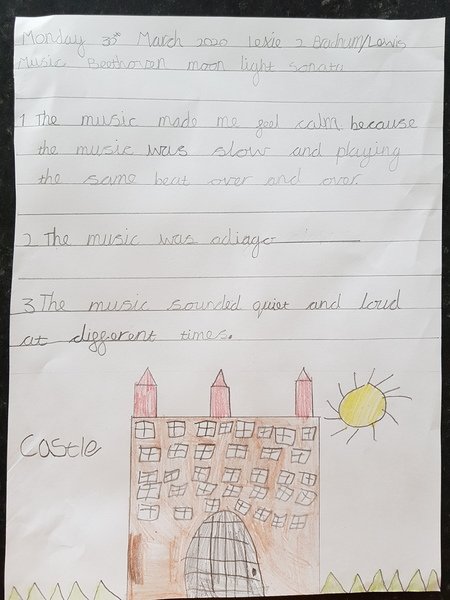 Monday 30th March 2020 Lexie 2 Bochum/Lewis
Music Beethoven moon light sonata
1 The music made me feel calm because
the music was slow and playing
the same beat over and over.
2 The music was adiago
3 The music sounded quiet and loud
at different times.
Castle